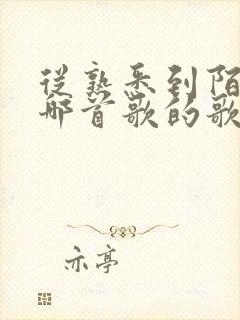 從熟悉到陌
哪首歌的歌
亦亭